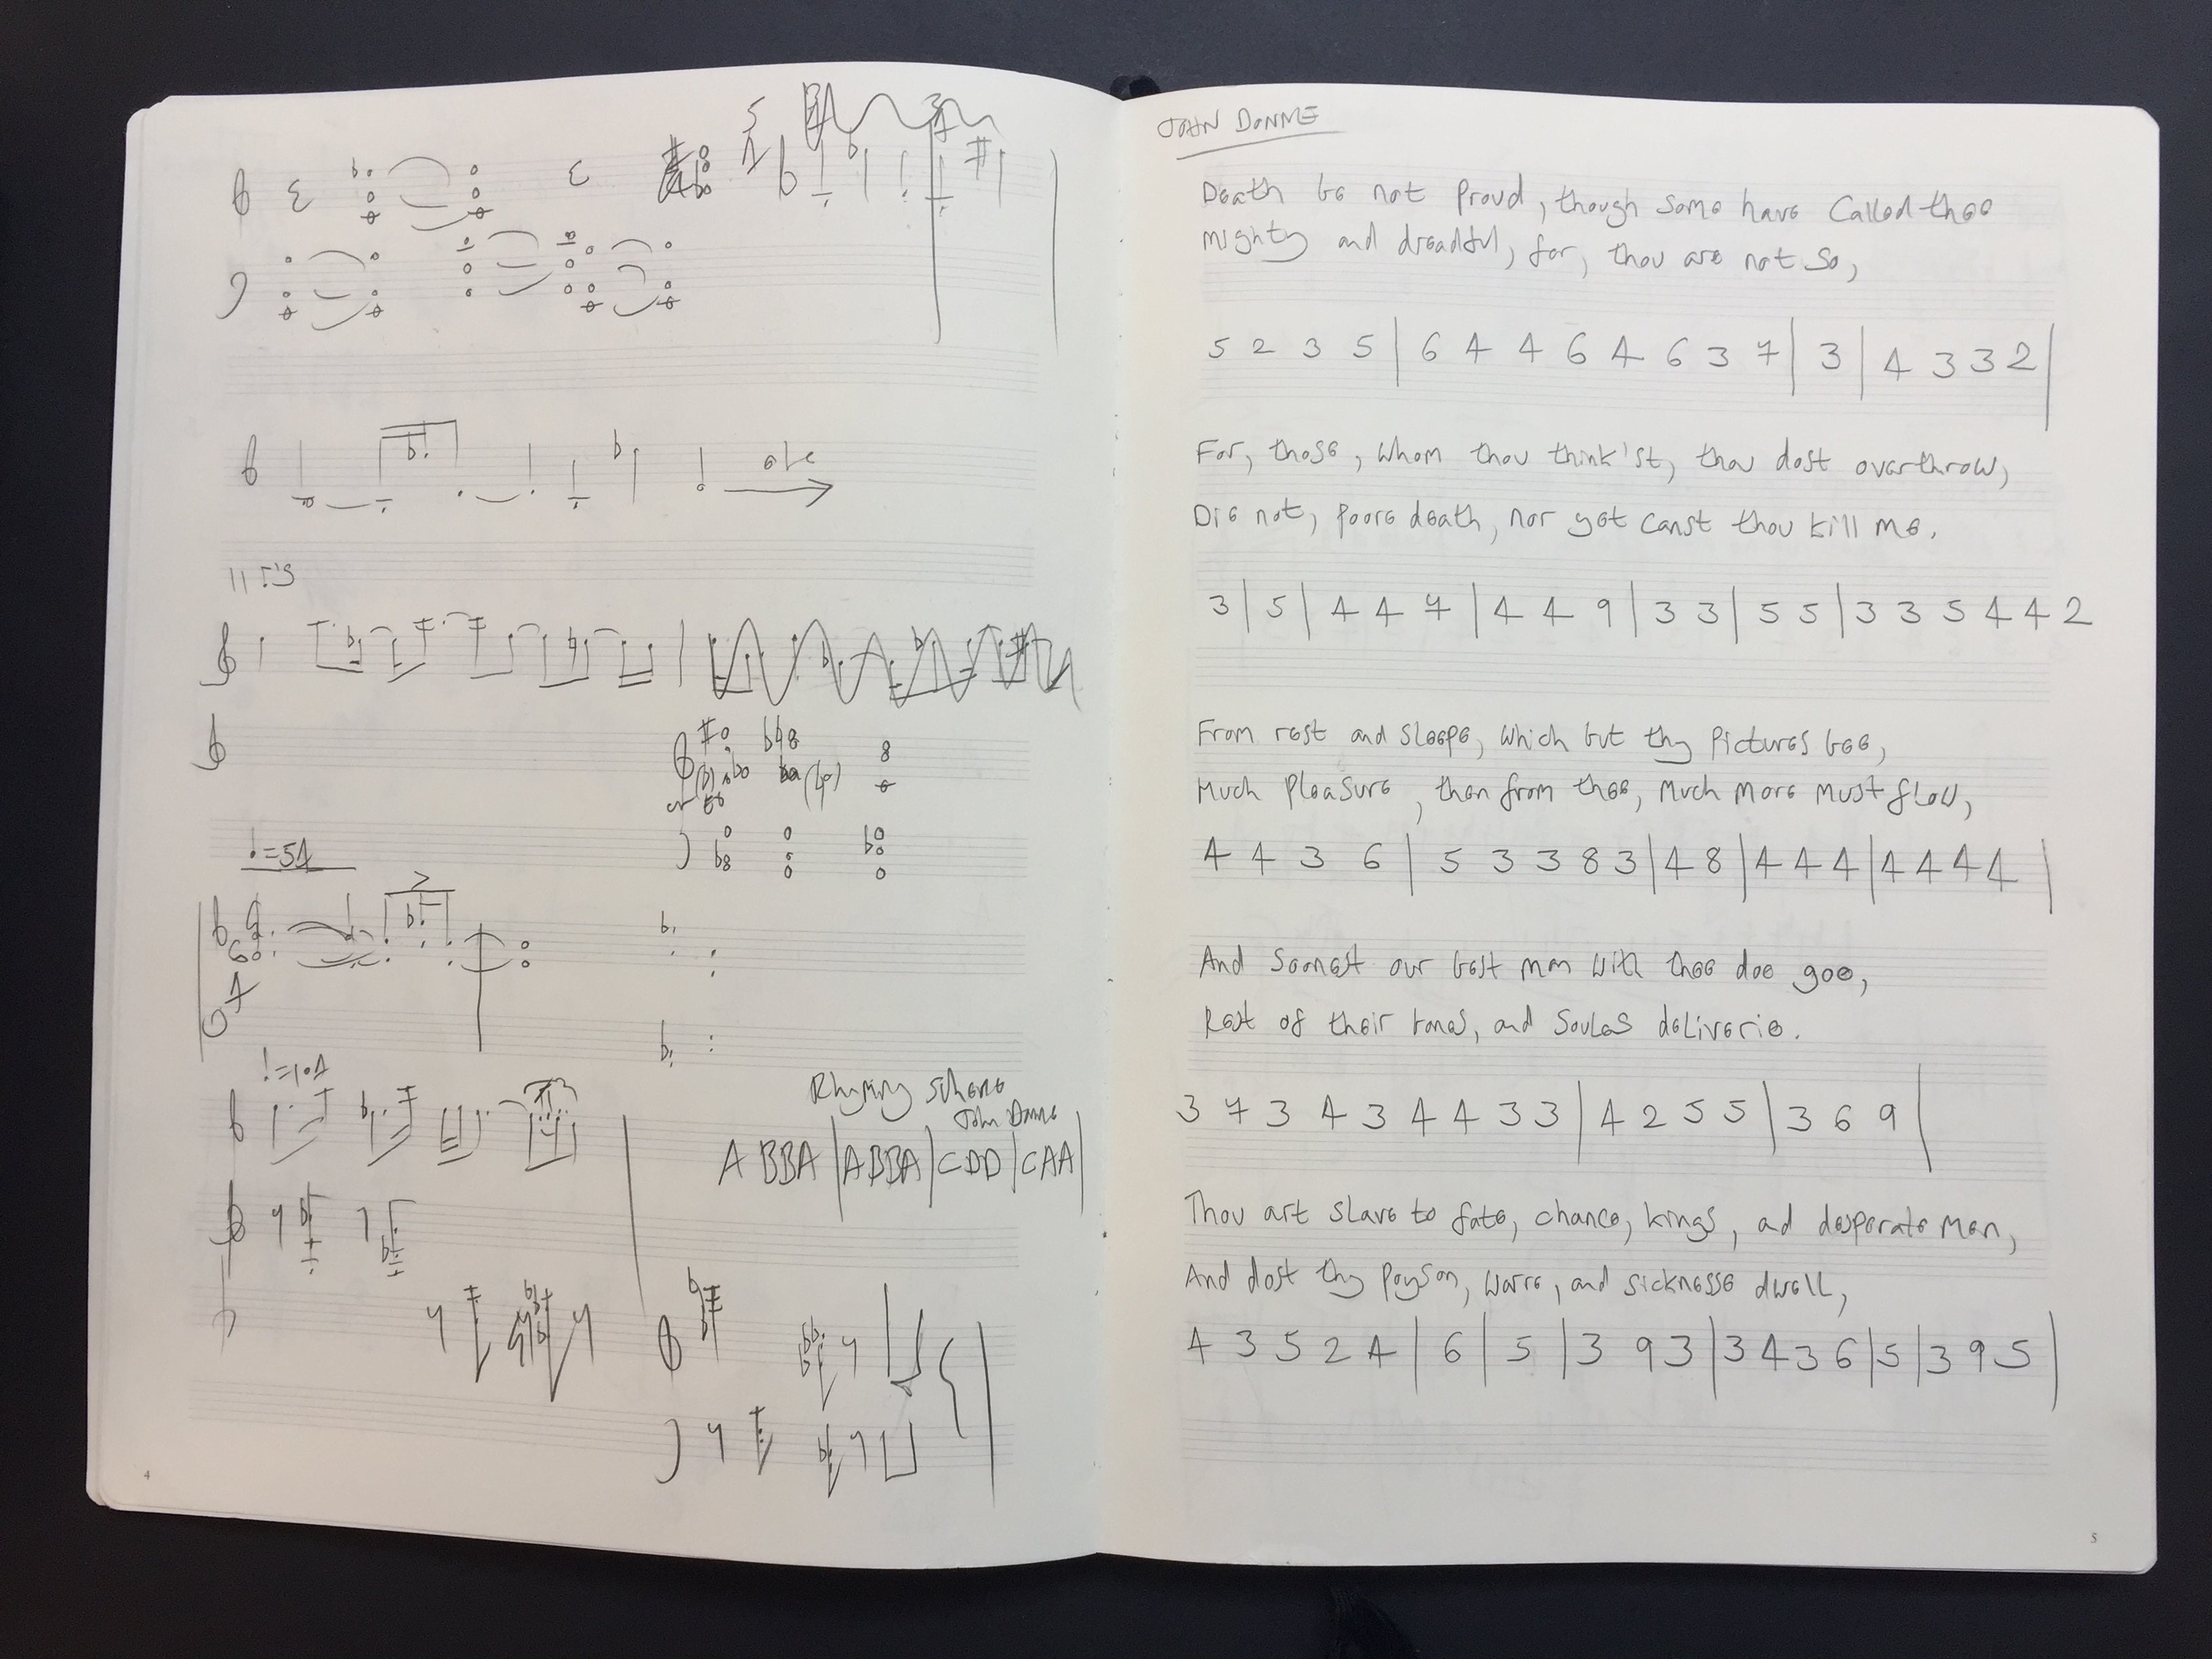 11
=54
=104
Rhyming Scheme
John Donne
A BBA | ABBA | CDD | CAA |
4
JOHN DONNE
Death be not Proud, though some have Called thee
Mighty and dreadful, for, thou are not so,
5 2 3 5 | 6 4 4 6 4 6 3 7 | 3 | 4 3 3 2 |
For, those, whom thou think'st, thou dost overthrow,
Die not, poore death, nor yet canst thou kill me.
3 | 5 | 4 4 7 | 4 4 9 | 3 3 | 5 5 | 3 3 5 4 4 2
From rest and sleepe, which but thy Pictures bee,
Much Pleasure, then from thee, Much More Must flow,
4 4 3 6 | 5 3 3 8 3 | 4 8 | 4 4 4 | 4 4 4 4 |
And Soonest our best men with thee doe goe,
Rest of their bones, and Soules deliverie.
3 7 3 4 3 4 4 3 3 | 4 2 5 5 | 3 6 9 |
Thou art slave to fate, chance, kings, ad desperate Men,
And dost thy Poyson, Warre, and sicknesse dwell,
4 3 5 2 4 | 6 | 5 | 3 9 3 | 3 4 3 6 | 5 | 3 9 5 |
5